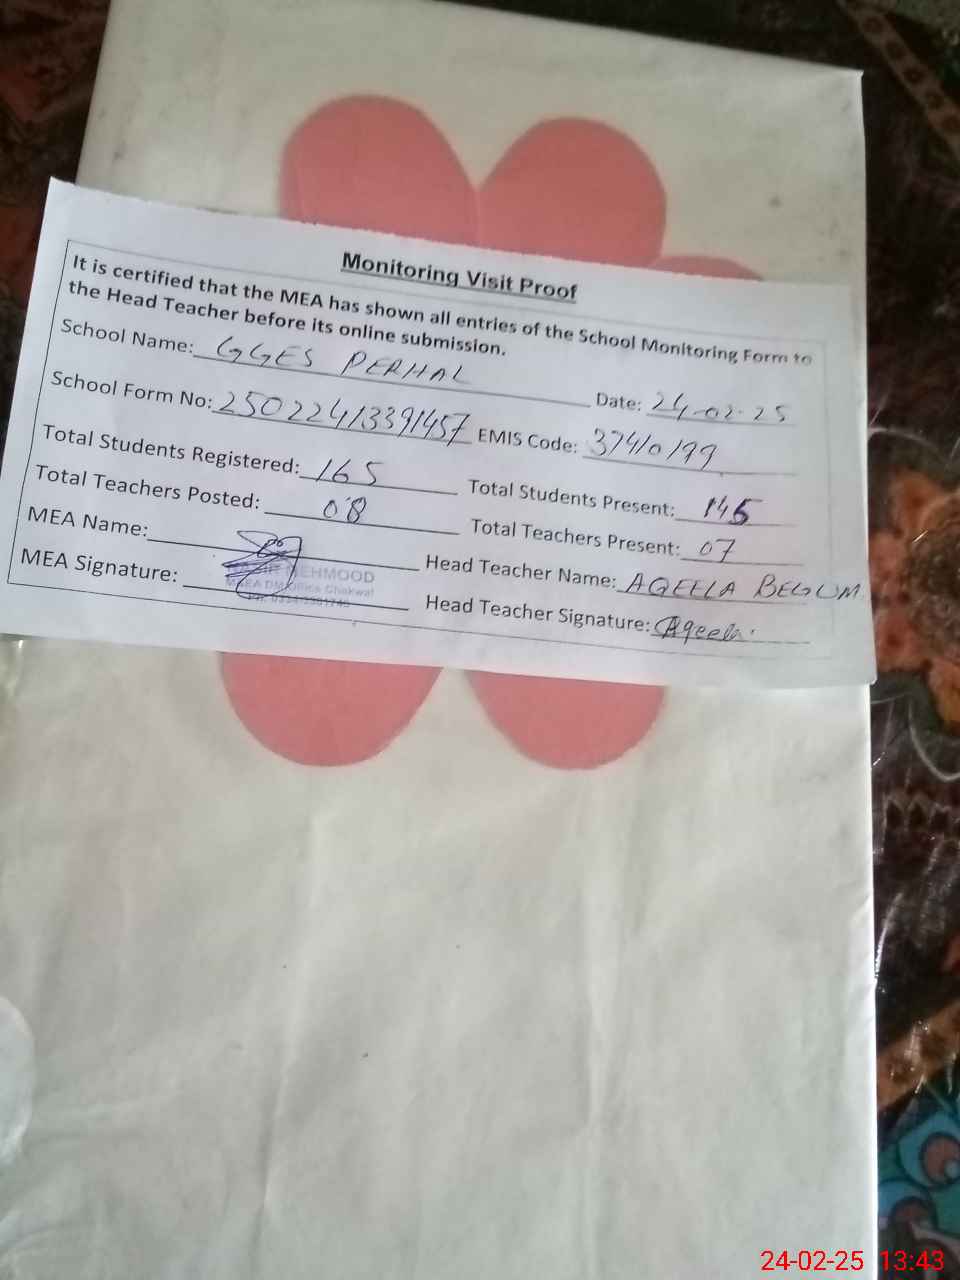 Monitoring Visit Proof
It is certified that the MEA has shown all entries of the School Monitoring Form to
the Head Teacher before its online submission.
School Name: GGES PERHAL Date: 24-02-25
School Form No: 25022413391457 EMIS Code: 37410199
Total Students Registered: 165 Total Students Present: 145
Total Teachers Posted: 08 Total Teachers Present: 07
MEA Name: Head Teacher Name: AQEELA BEGUM
MEA Signature: MEHMOOD
Office Chakwal
Head Teacher Signature: Aqeela
24-02-25 13:43